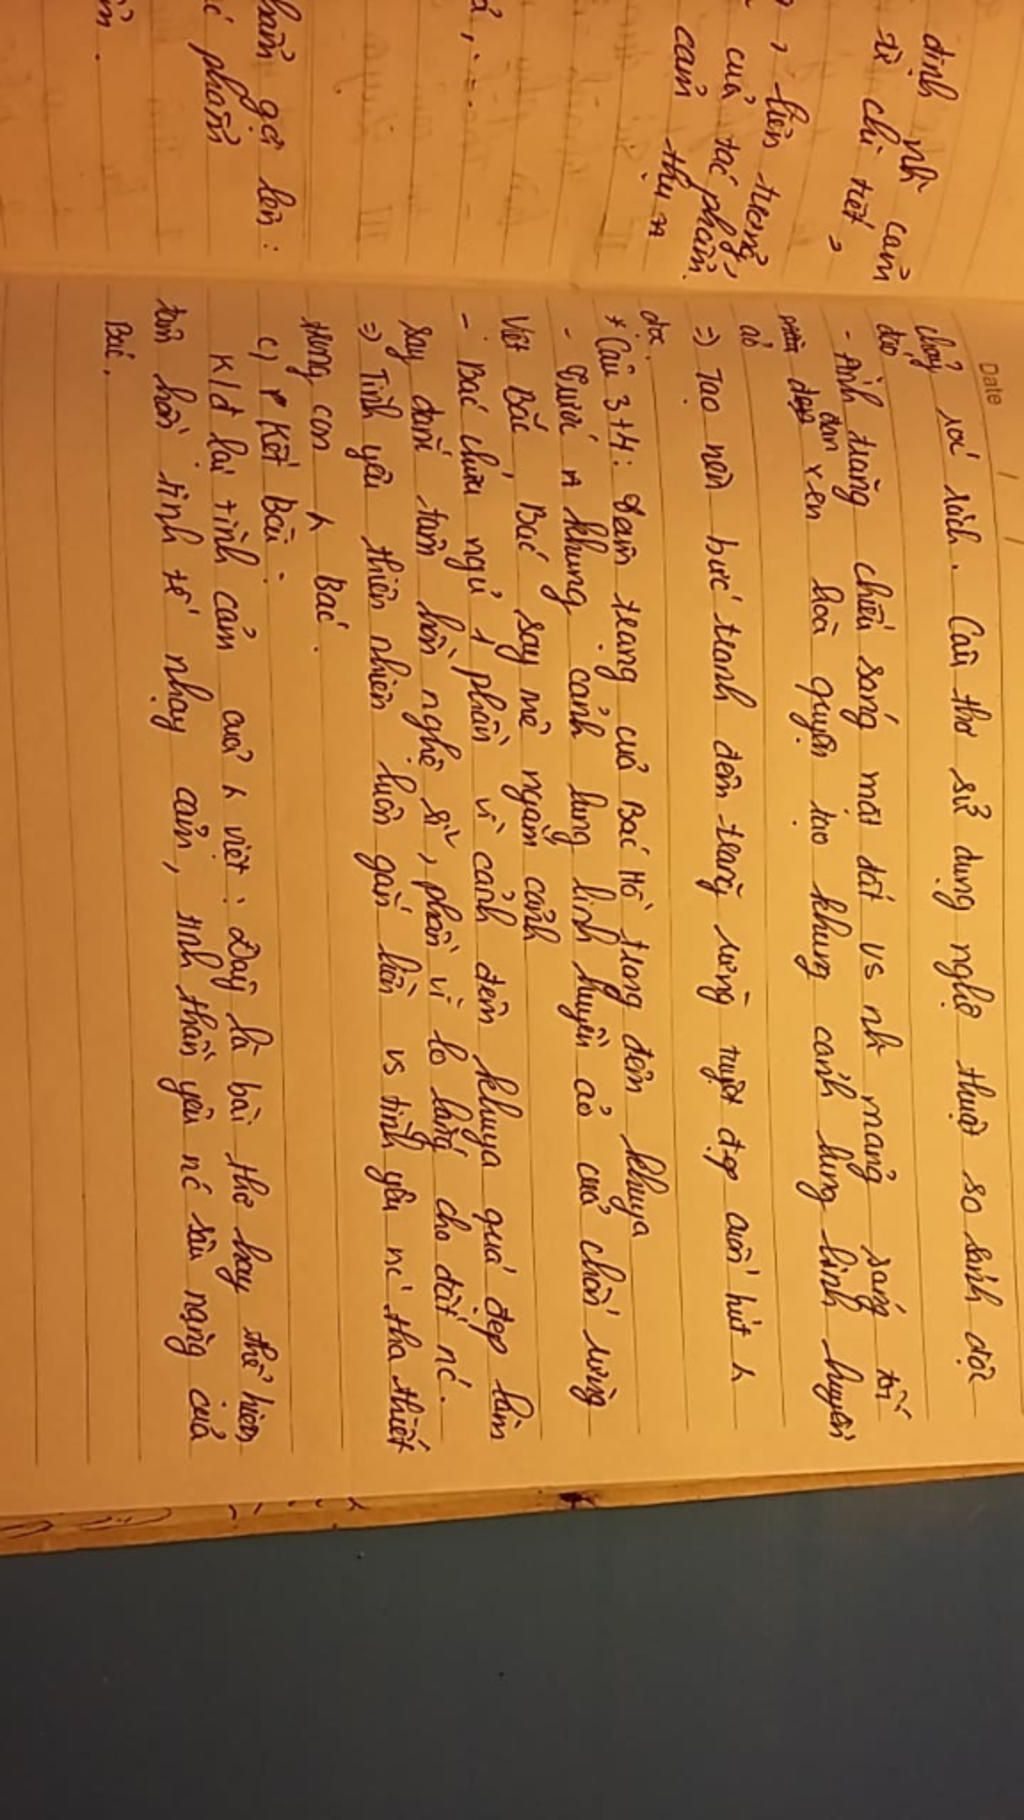 định nh cảm
từ chi tiết,
, liên tưởng,
của tác phẩm.
cảm thụ
phẩm
Date
chảy róc rách. Câu thơ sử dụng nghệ thuật so sánh độc
đáo
- Ánh trăng chiếu sáng mặt đất vs nh mảng sáng tối
đan xen hoà quyện tạo khung cảnh lung linh huyền
ảo
=> Tạo nên bức tranh đêm trăng rừng tuyệt đẹp cuốn hút
đọc.
* Câu 3+4: Tâm trạng của Bác Hồ trong đêm khuya
- Dưới khung cảnh lung linh huyền ảo của chốn rừng
Việt Bắc Bác say mê ngắm cảnh
- Bác chưa ngủ 1 phần vì cảnh đêm khuya quá đẹp làm
say đắm tâm hồn nghệ sĩ, phần vì lo lắng cho đất nc.
=> Tình yêu thiên nhiên luôn gắn liền vs tình yêu nc tha thiết
trong con Bác.
c) Kết Bài:
K/đ lại tình cảm của viết: Đây là bài thơ hay thể hiện
tâm hồn tinh tế nhạy cảm, tinh thần yêu nc sâu nặng của
Bác.